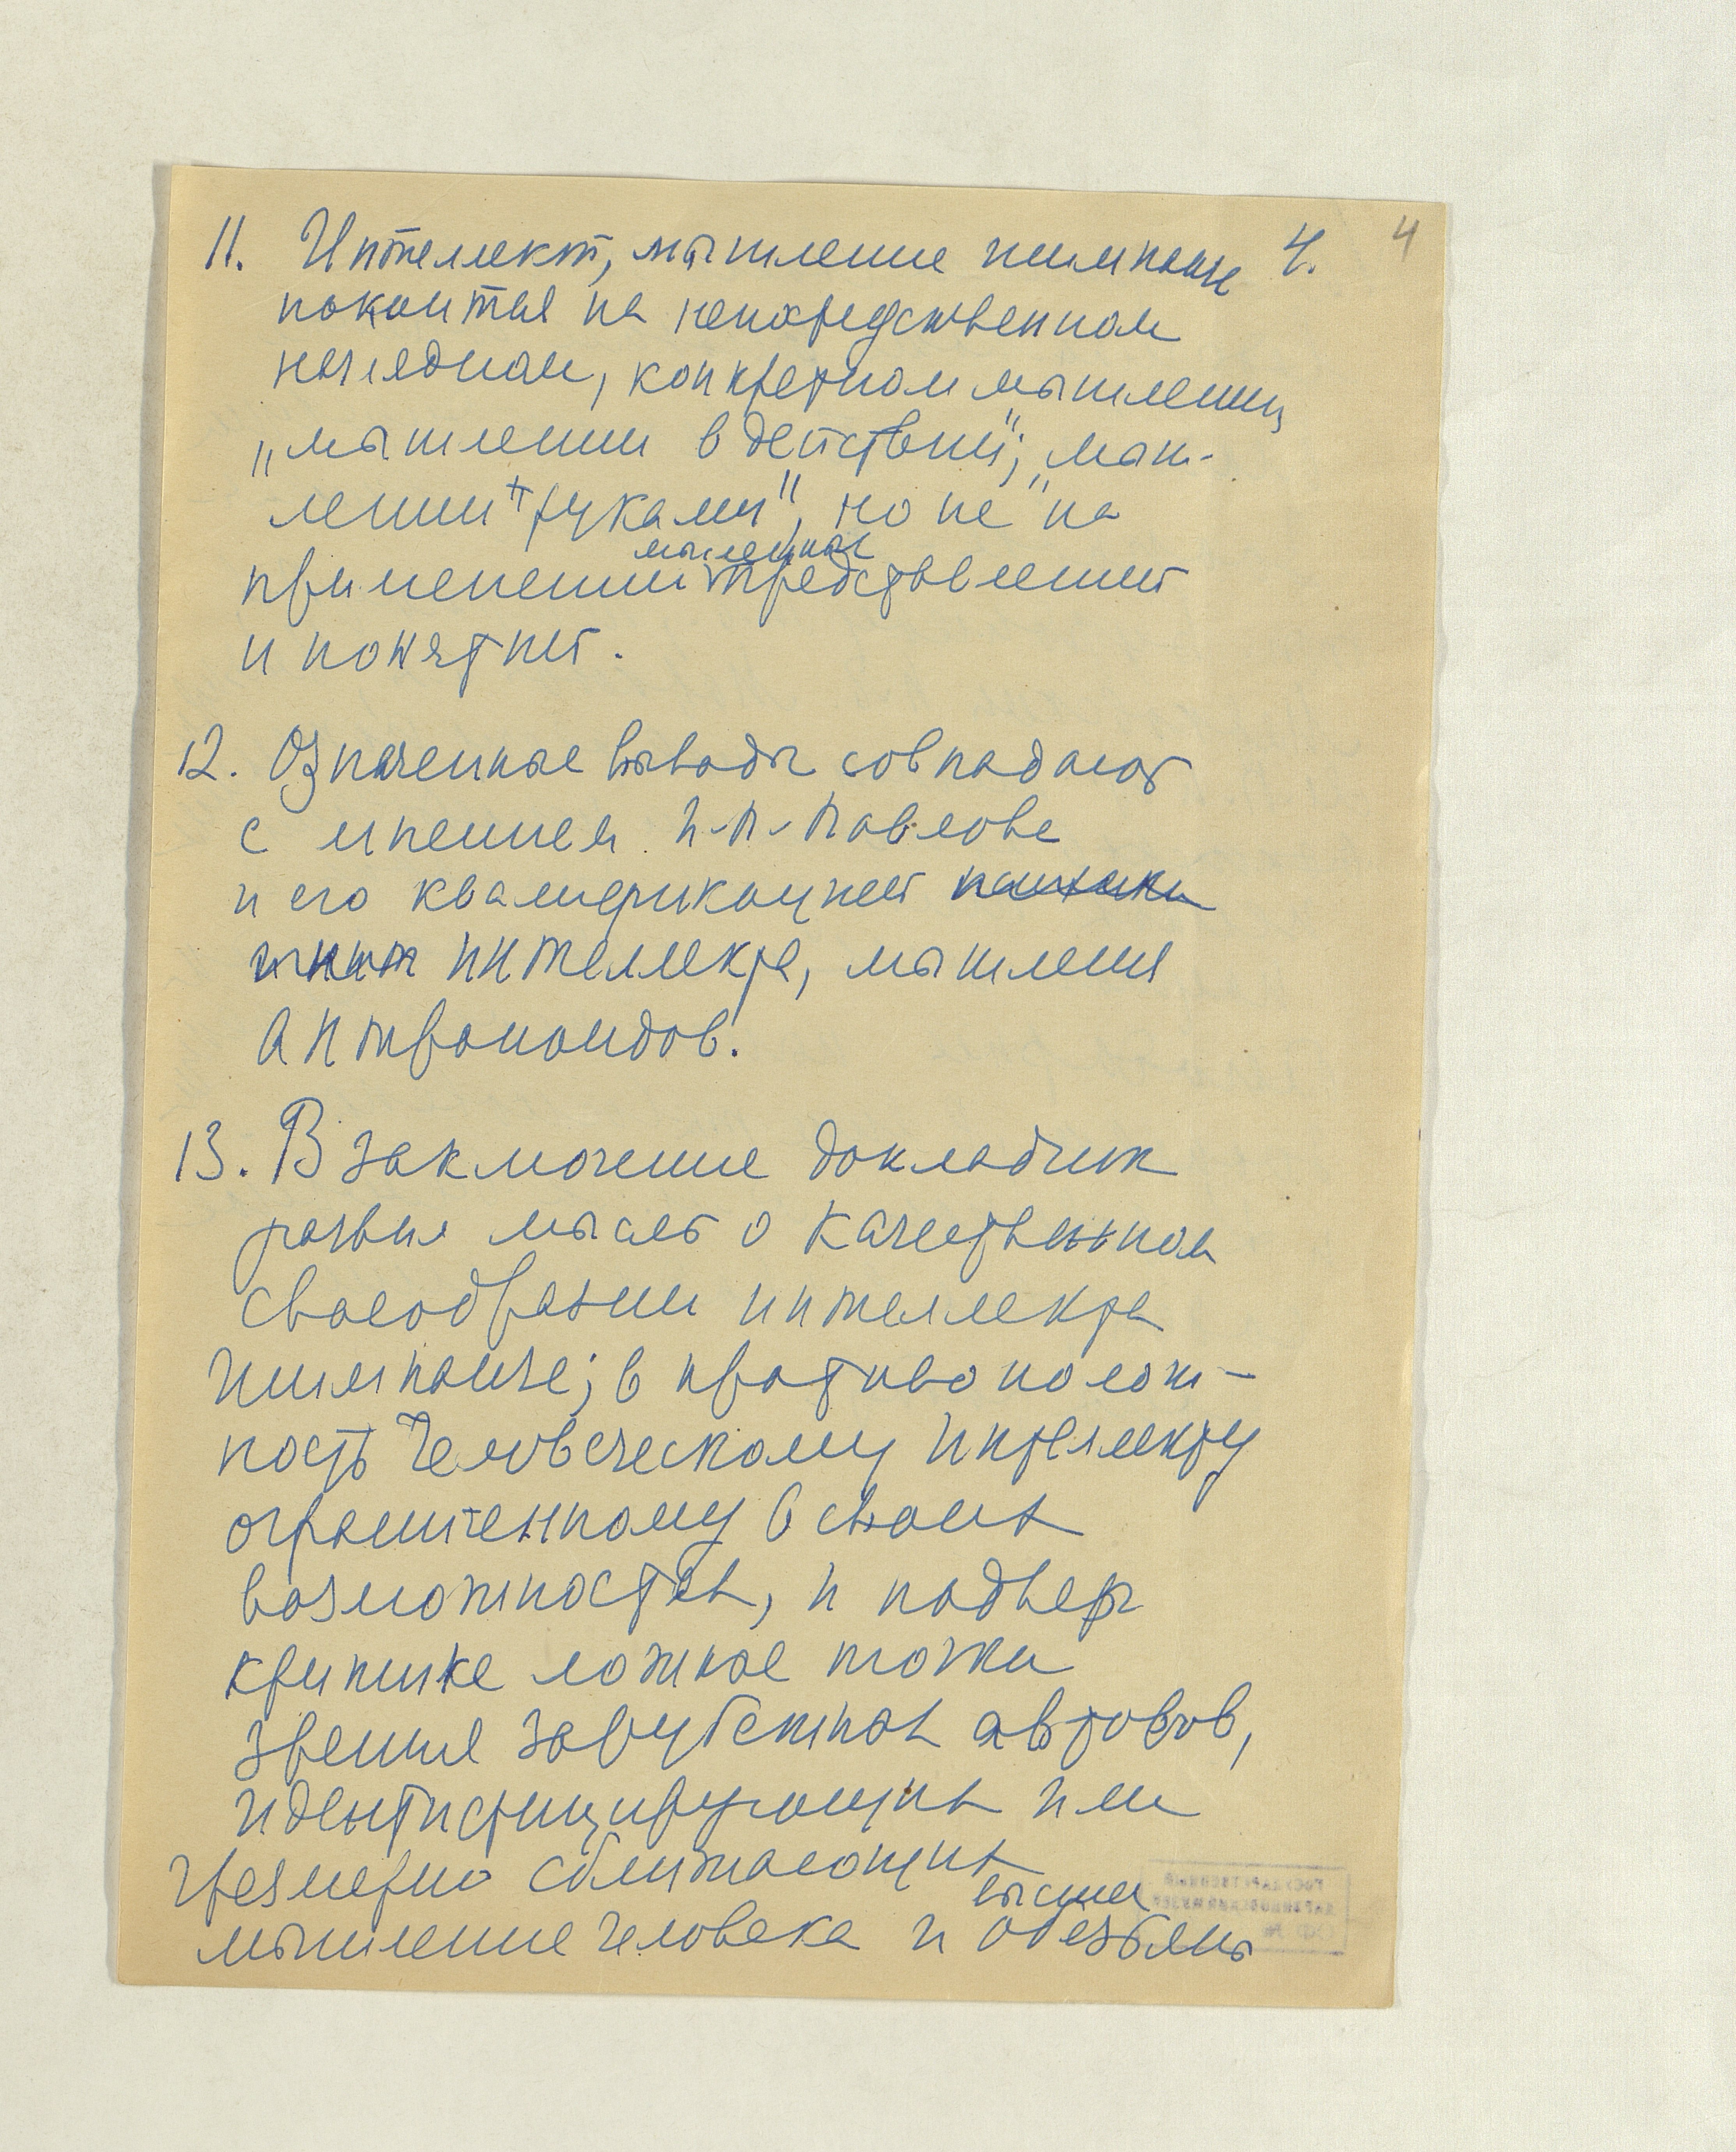 11. Интеллект, мышление шимпанзе 4. 4
покоится на непосредственном
наглядном, конкретном мышлении
„мышлении в действии", „мыш-
лении „руками", но не на
мысленных
применении представлений
и понятий.
12. Означенные выводы совпадают
с мнением И.П. Павлова
и его квалификацией психики
интеллекта, мышления
антропоидов.
13. В заключение докладчик
развил мысль о качественном
своеобразии интеллекта
шимпанзе; в противополож-
ность человеческому интеллекту
ограниченному в своих
возможностях, и подверг
критике ложные точки
зрения зарубежных авторов,
идентифицирующих или
чрезмерно сближающих
высших
мышление человека и обезьяны
ГОСУДАРСТВЕННЫЙ
ДАРВИНОВСКИЙ МУЗЕЙ